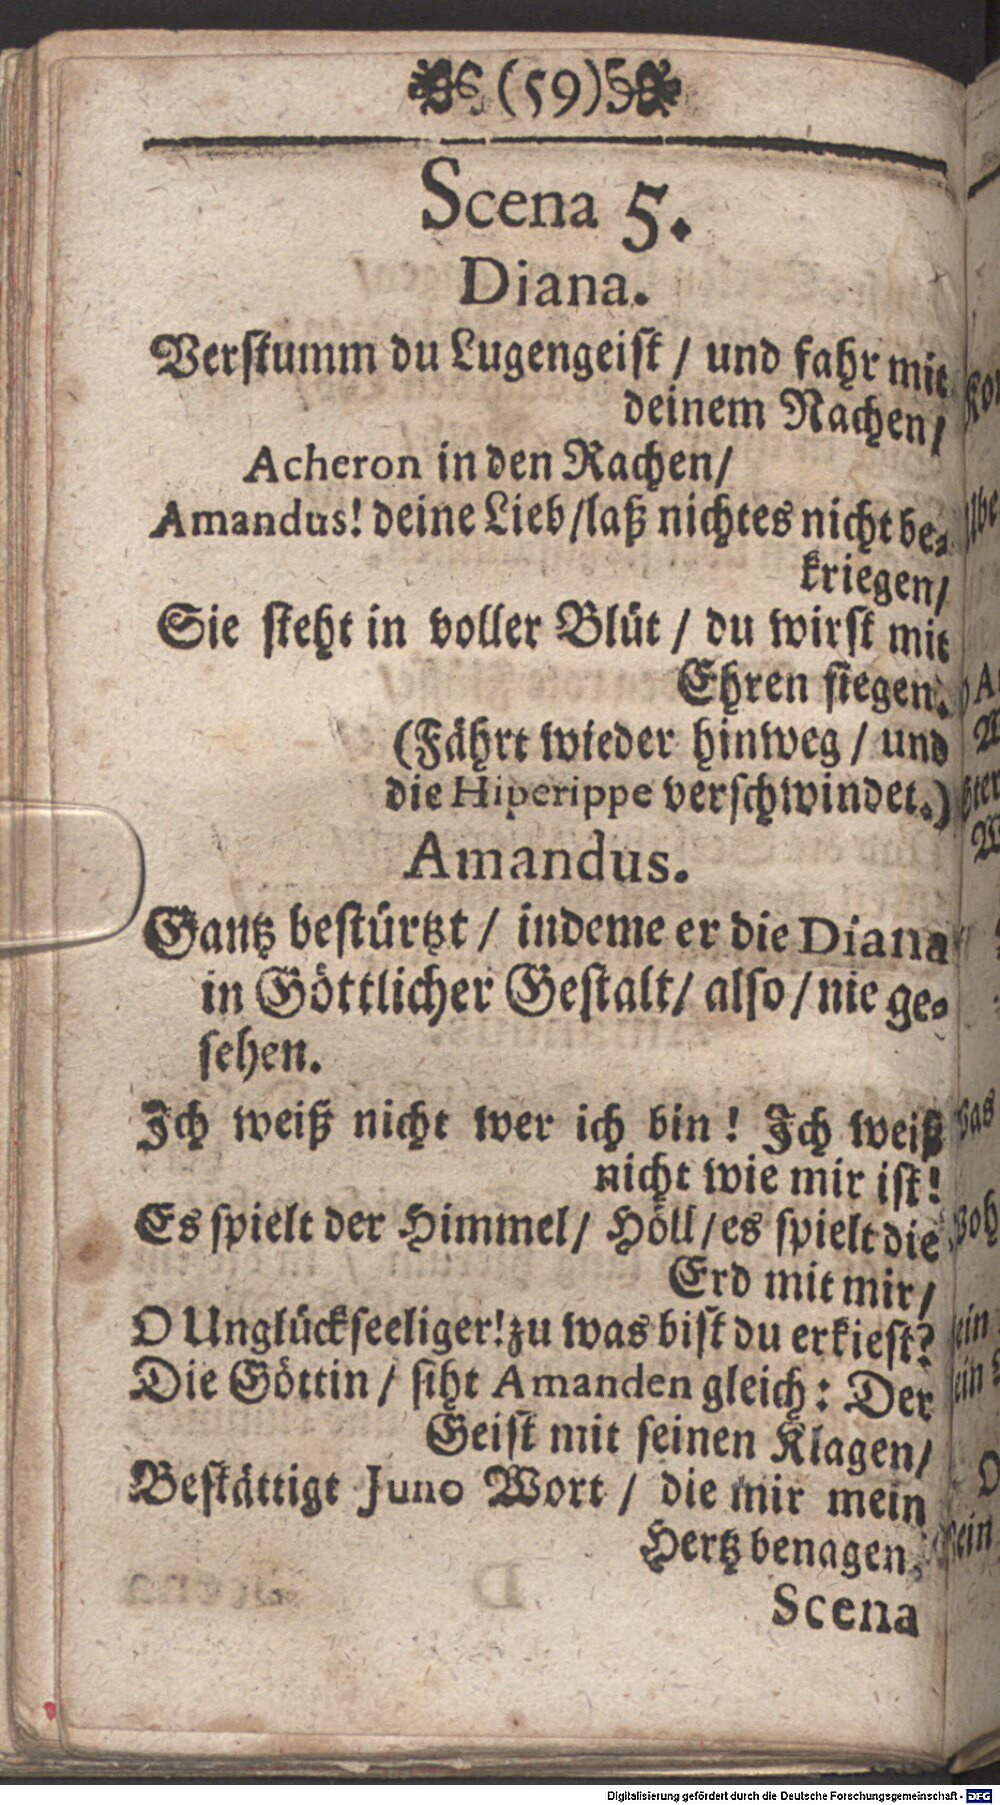 (59)
Scena 5.
Diana.
Verstumm du Lugengeist / und fahr mit
deinem Nachen/
Acheron in den Rachen/
Amandus! deine Lieb/laß nichtes nicht be-
kriegen/
Sie steht in voller Blüt / du wirst mit
Ehren siegen.
(Fährt wieder hinweg / und
die Hiperippe verschwindet.)
Amandus.
Gantz bestürtzt / indeme er die Diana
in Göttlicher Gestalt/ also/ nie ge-
sehen.
Ich weiß nicht wer ich bin! Ich weiß
nicht wie mir ist!
Es spielt der Himmel/ Höll/es spielt die
Erd mit mir/
O Unglückseeliger! zu was bist du erkiest?
Die Göttin / siht Amanden gleich: Der
Geist mit seinen Klagen/
Bestättigt Juno Wort / die mir mein
Hertz benagen.
Scena
Digitalisierung gefördert durch die Deutsche Forschungsgemeinschaft - DFG